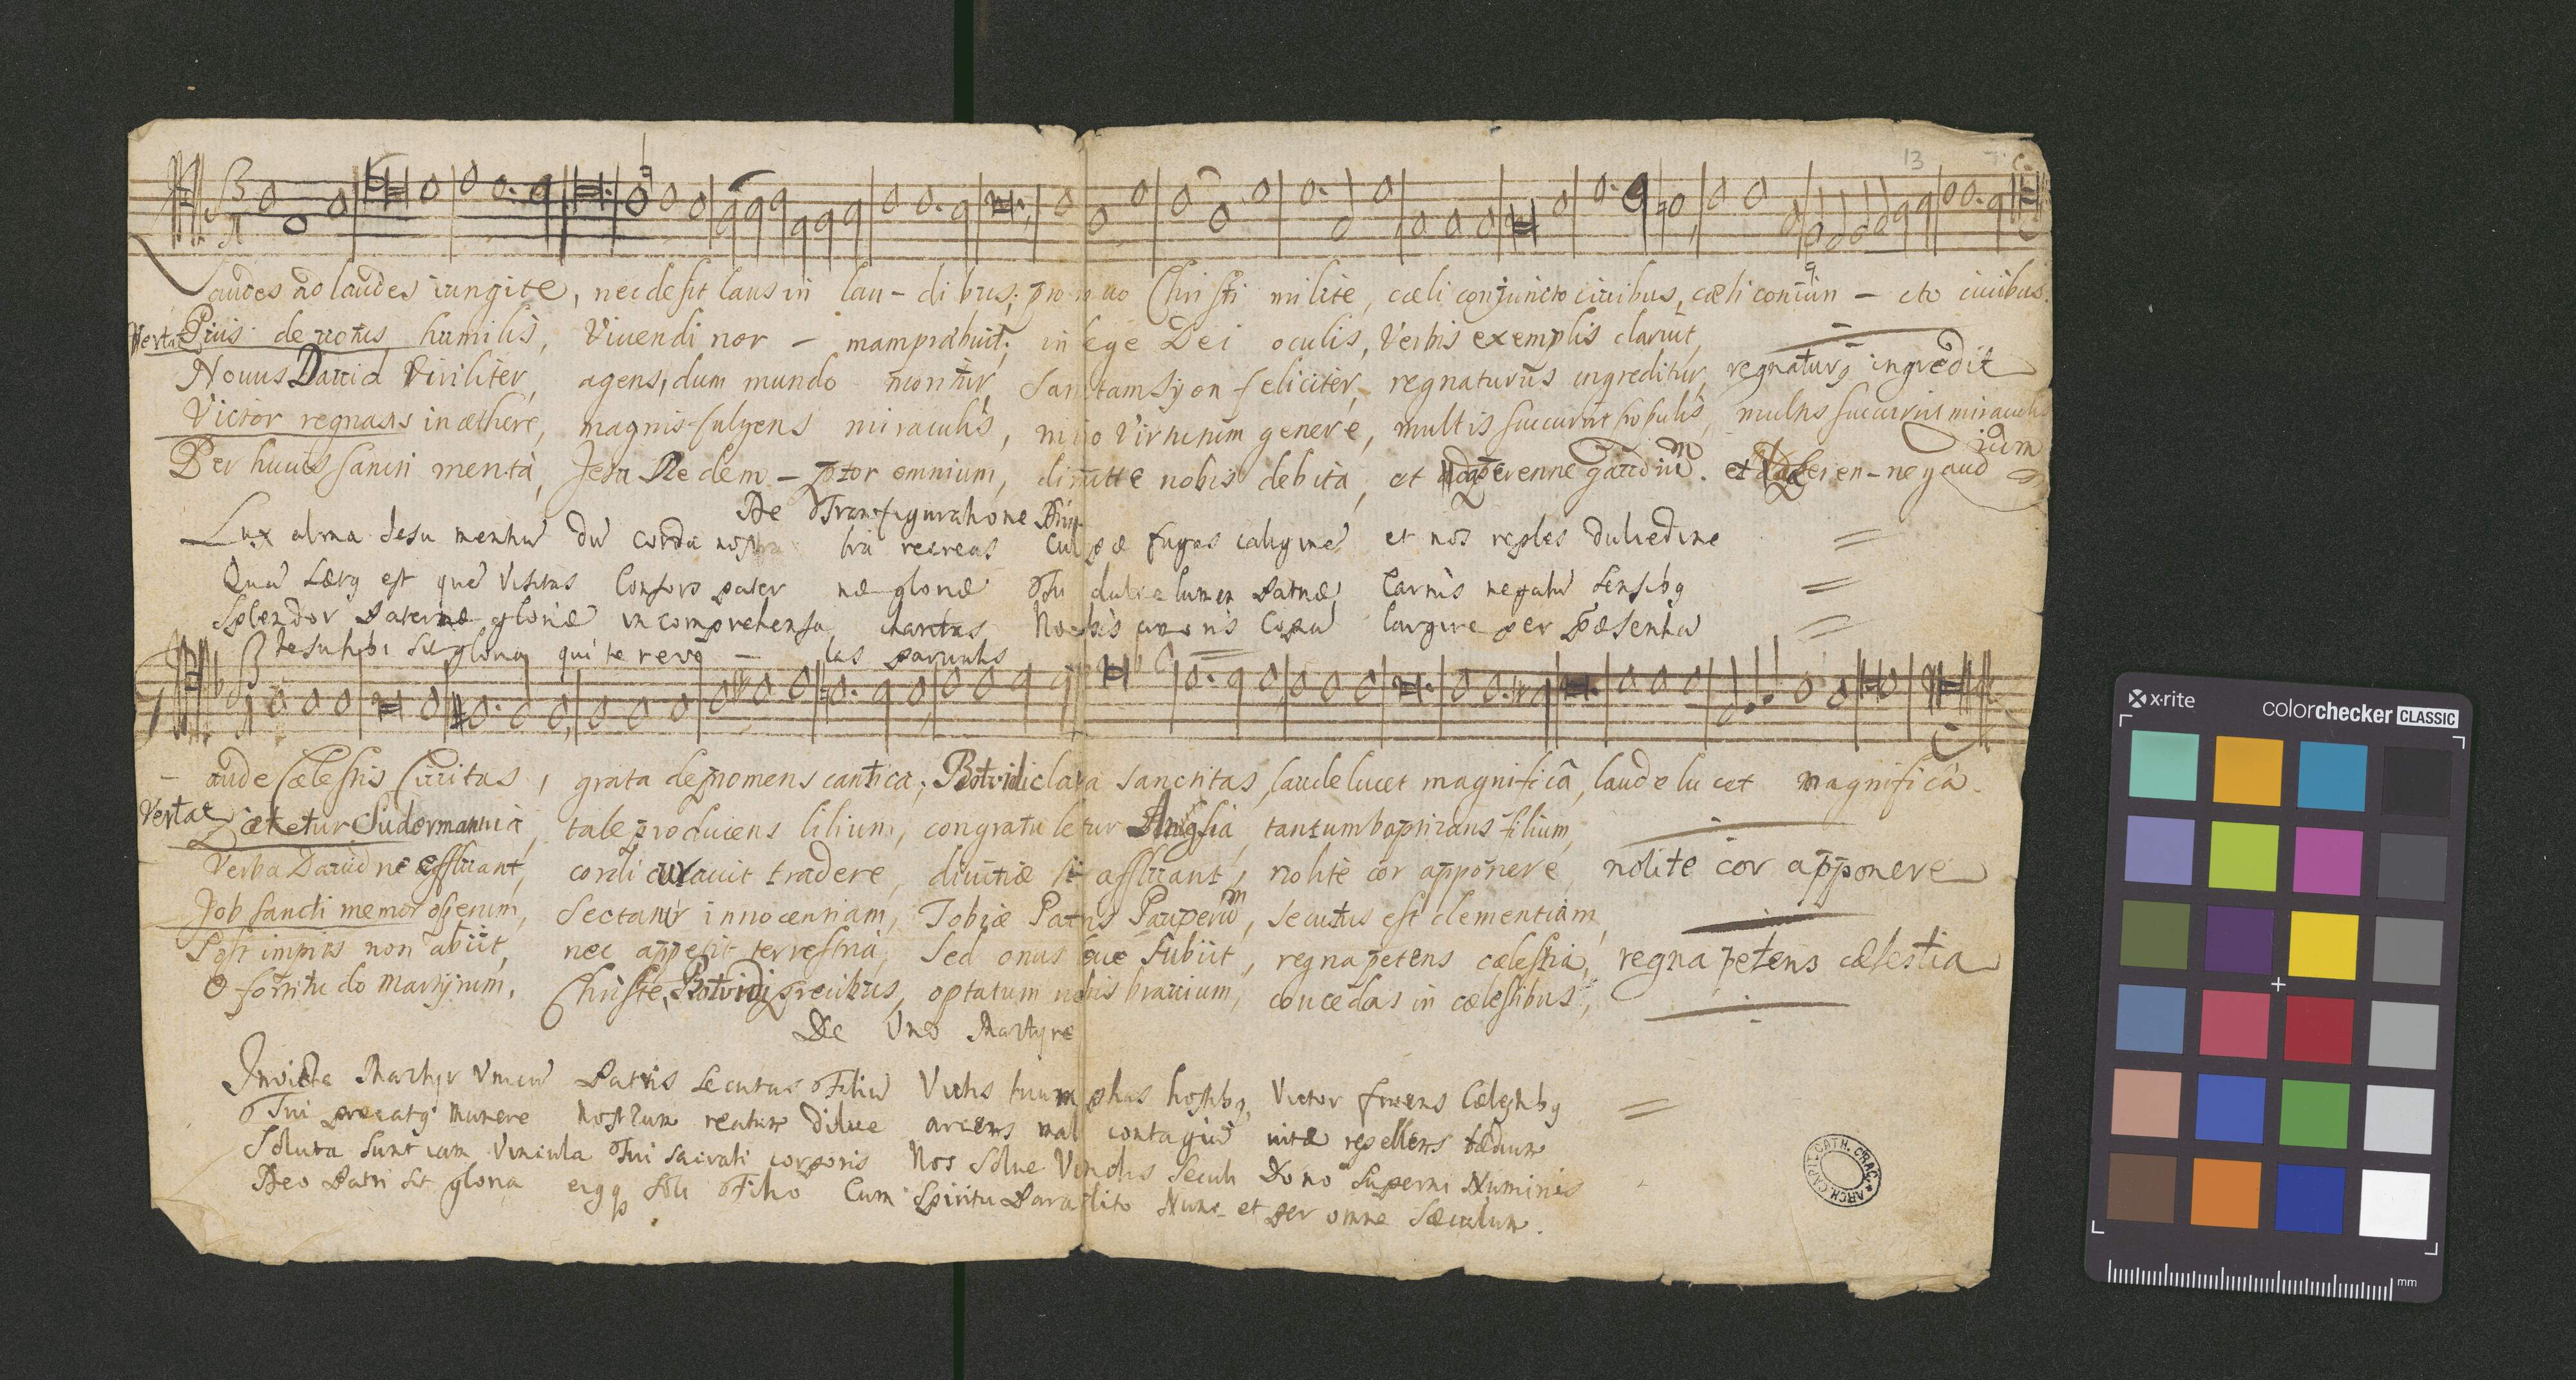 13
Laudes ad laudes iungite, nec desit laus in lau-dibus; pro nouo Christi milite, cæli conjuncto ciuibus, cæli coniun-cto ciuibus.
Vertat Pius deuotus humilis, Viuendi nor-mam præbuit; in lege Dei oculis, Verbis exemplis claruit,
Nouus Dauid Viriliter, agens, dum mundo moritur, Sanctam Syon feliciter, regnaturus ingreditur, regnaturꝯ ingredit
Victor regnans in æthere, magnis fulgens miraculis, miro Virtutum genere, multis succurrit populis, multis succurrit miraculis
Per huius sancti merita, Jesu Redem-ptor omnium, dimitte nobis debita, et perenne gaudium. et peren-ne gaud ium
De Transfiguratione Dni
Lux alma Jesu mentiū dū corda nostra recreas Culpæ fugas caliginē et nos reples dulcedine
Quā Lætꝯ est quē visitas Consors pater næ gloriæ Tu dulce lumen Patriæ Carnis negatū sensibꝯ
Splendor Paternæ gloriæ incomprehensa charitas Nobis amoris Copiā largire per præsentiā
Jesu tibi sit gloria qui te reve - las paruulis
aude Cælestis Ciuitas, grata depromens cantica; Botvidi clara sanctitas, laude lucet magnifica, laude lucet magnifica.
Vertat Lætetur Sudermannia, tale producens lilium, congratuletur Anglia, tantum baptizans filium,
Verba Dauid ne effluant, cordi curauit tradere, diuitiæ si affluant, nolite cor apponere, nolite cor apponere
Job sancti memor operum, Sectatur innocentiam, Tobiæ Patris Pauperum, secutus est clementiam,
Post impios non abiit, nec appetit terrestria, Sed onus leue subiit, regna petens cælestia, regna petens cælestia
O fortitudo Martyrum, Christe, Botvidi precibus, optatum nobis brauium, concedas in cælestibus,
De Vno Martyre
Invicte Martyr Vnicū Patris secutus Filiū Victis triumphas hostibꝯ, Victor fruens Cælestibꝯ
Tui precatꝯ munere Nostrum reatum dilue arcens mali contagiū uitæ repellens tædium
Soluta sunt iam Vincula Tui sacrati corporis Nos solue Vinclis seculi Dono superni Numinis
Deo Patri sit gloria eiusq soli Filio Cum Spiritu Paraclito Nunc et per omne Sæculum.
ARCH. CAPIT. CATH. CRAC.
x-rite
colorchecker CLASSIC
mm